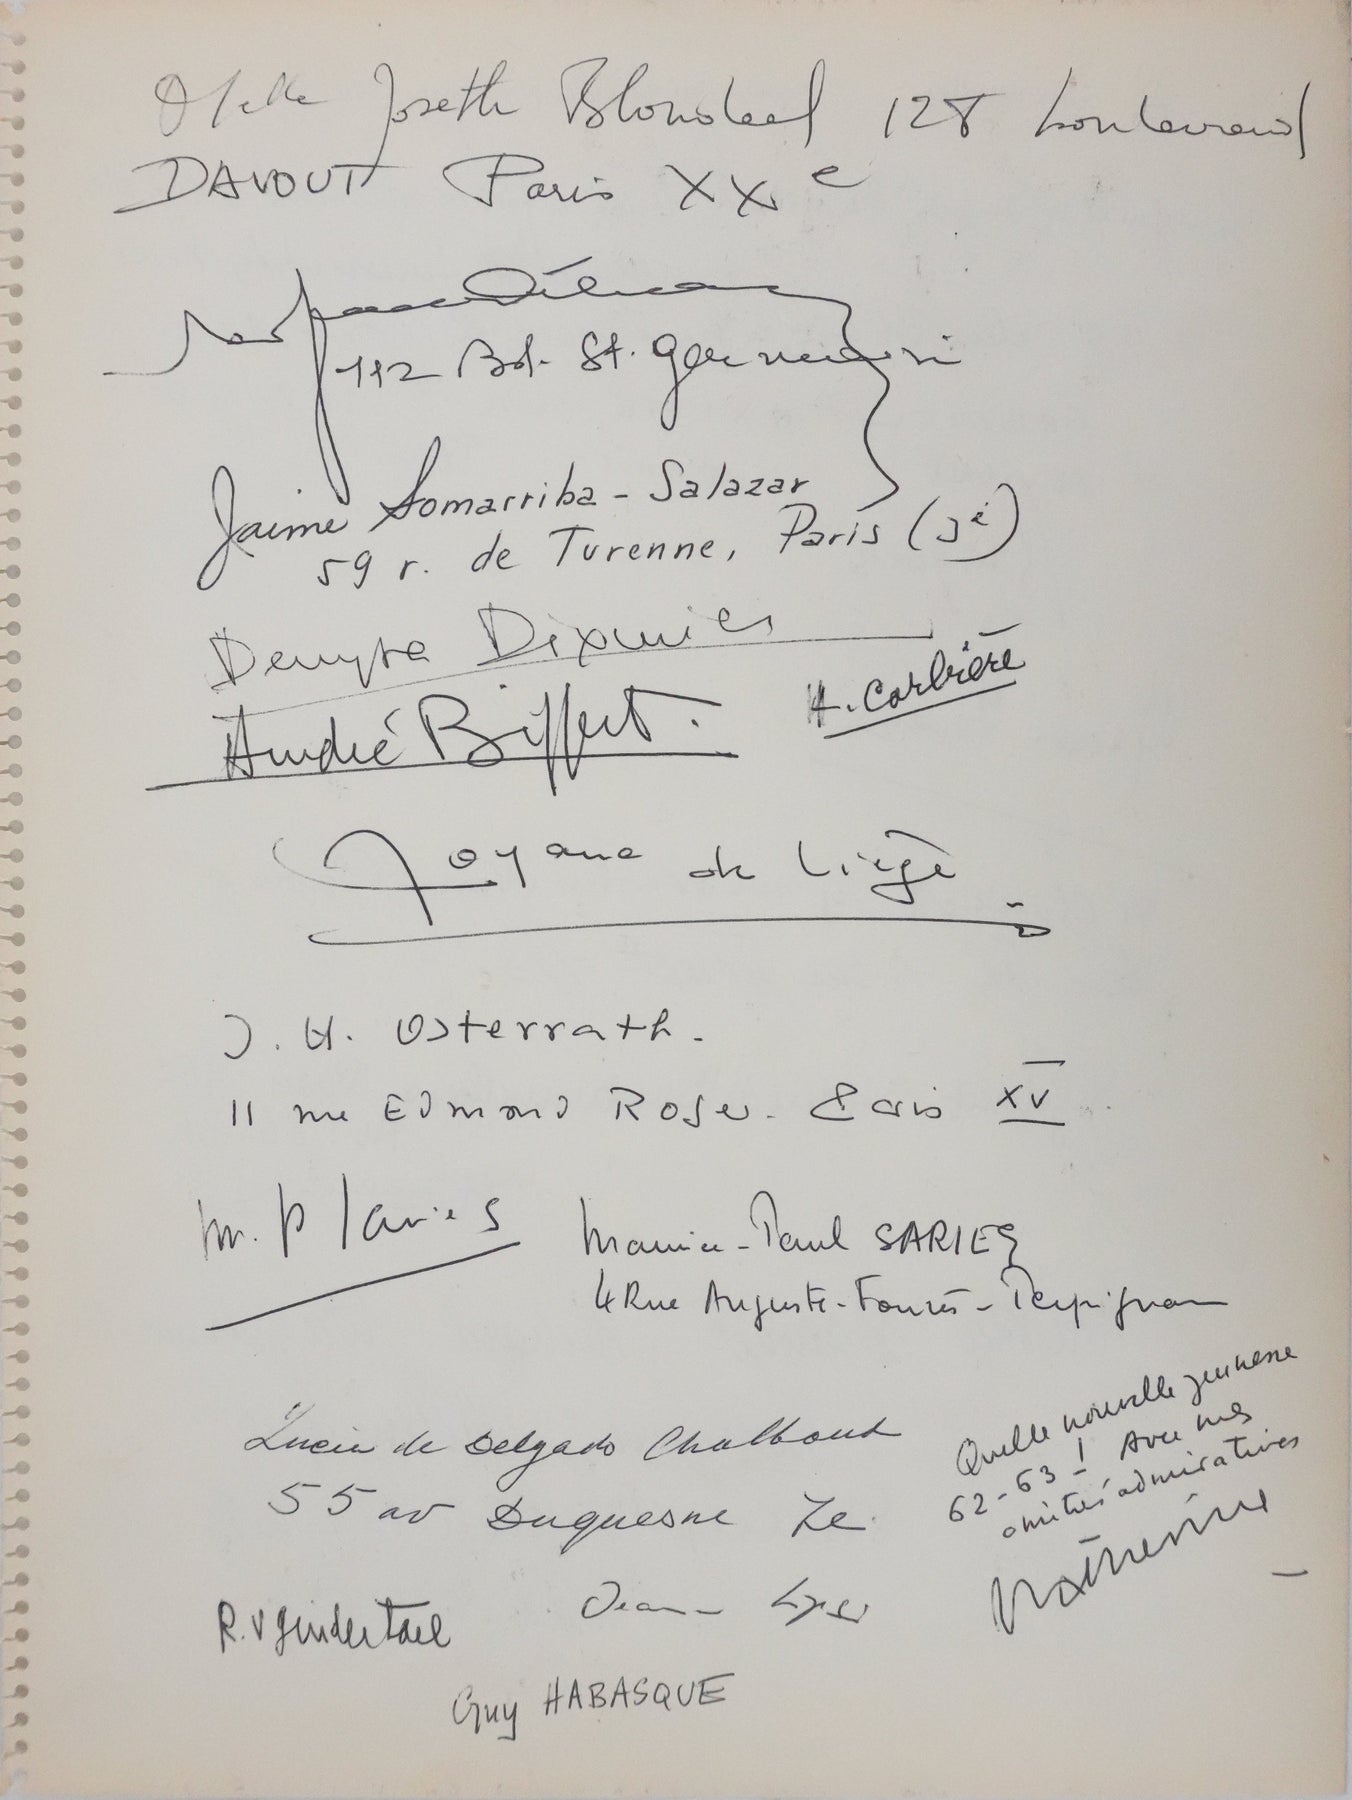 Melle Joseth Blondeel 128 boulevard
DAVOUT Paris XXe
112 Bd. St. Germain
Jaime Somarriba - Salazar
59 r. de Turenne, Paris (3e)
Denyse Dixmier
H. Corbière
André Biffert.
Joyane de Liège
J. H. Osterrath.
11 rue Edmond Roger. Paris XV
M. P Saries
Maurice-Paul SARIES
4 Rue Auguste-Fourès - Perpignan
Lucia de Delgado Chalbaud
55 av Duquesne 7e
Quelle nouvelle jeunesse
62-63! Avec mes
amitiés admiratives
Katherine
R. V Gindertael
Jean
Guy HABASQUE